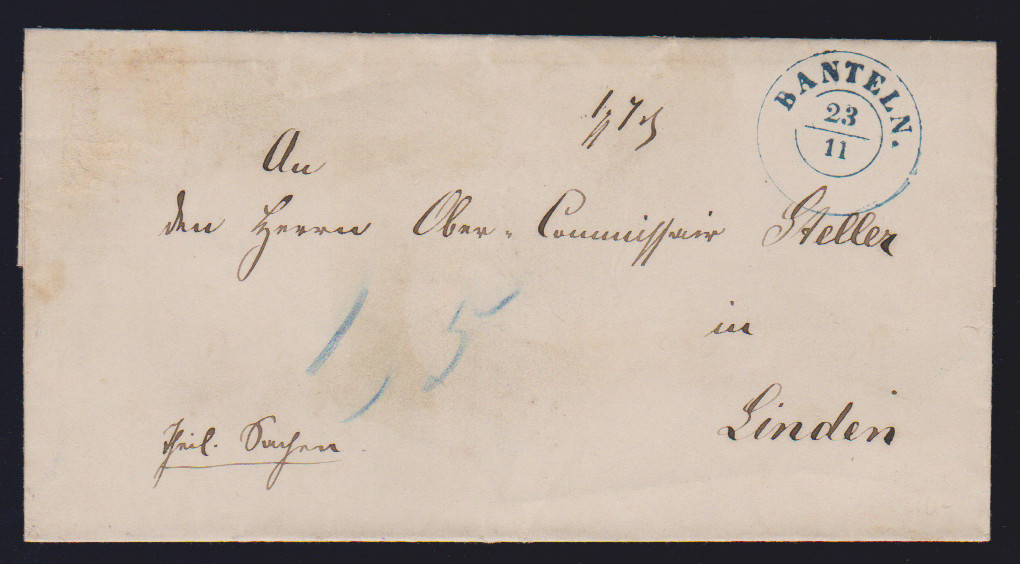 BANTELN.
23
11
An
den Herrn Ober-Commissair Steller
in
1,5
Linden
Theil. Sachen